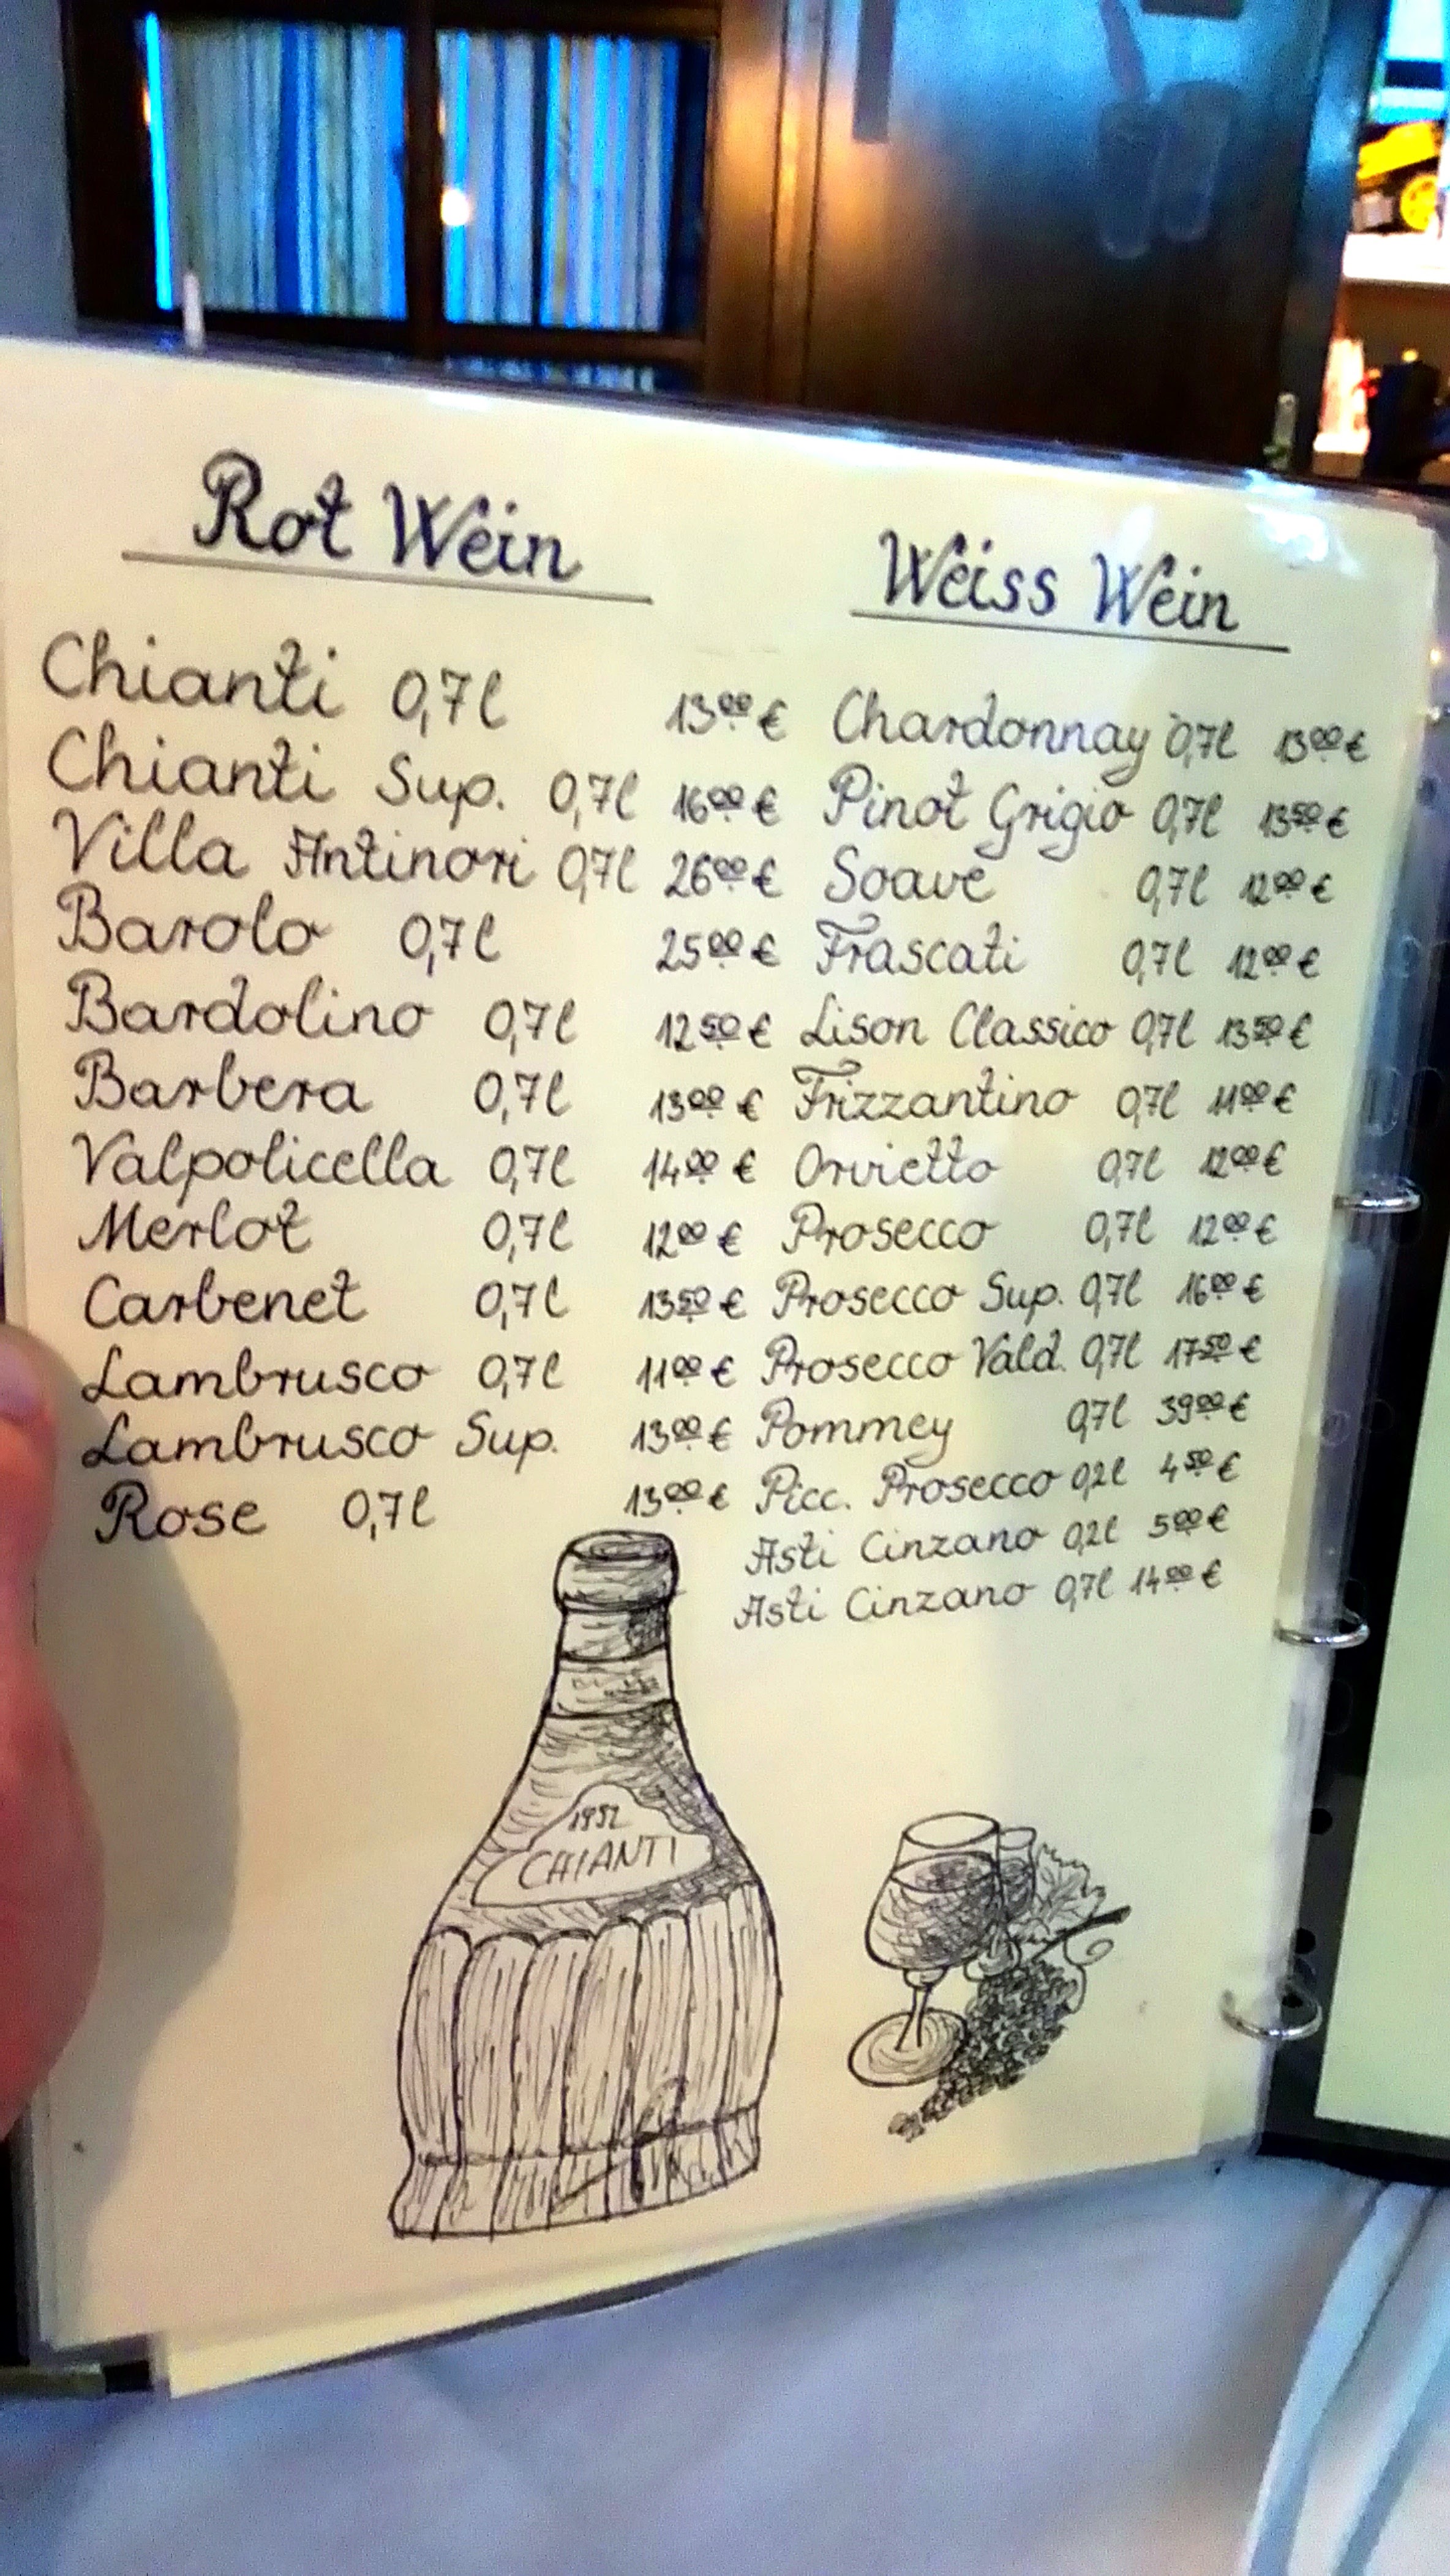 Rot Wein
Chianti 0,7l 13.00 €
Chianti Sup. 0,7l 16.00 €
Villa Antinori 0,7l 26.00 €
Barolo 0,7l 25.00 €
Bardolino 0,7l 12.50 €
Barbera 0,7l 13.00 €
Valpolicella 0,7l 14.00 €
Merlot 0,7l 12.00 €
Carbenet 0,7l 13.50 €
Lambrusco 0,7l 11.00 €
Lambrusco Sup. 13.00 €
Rose 0,7l 13.00 €
Weiss Wein
Chardonnay 0,7l 13.00 €
Pinot Grigio 0,7l 13.50 €
Soave 0,7l 12.00 €
Frascati 0,7l 12.00 €
Lison Classico 0,7l 13.50 €
Frizzantino 0,7l 11.00 €
Orvietto 0,7l 12.00 €
Prosecco 0,7l 12.00 €
Prosecco Sup. 0,7l 16.00 €
Prosecco Vald. 0,7l 17.50 €
Pommey 0,7l 39.00 €
Picc. Prosecco 0,2l 4.50 €
Asti Cinzano 0,2l 5.00 €
Asti Cinzano 0,7l 14.00 €
1952
CHIANTI